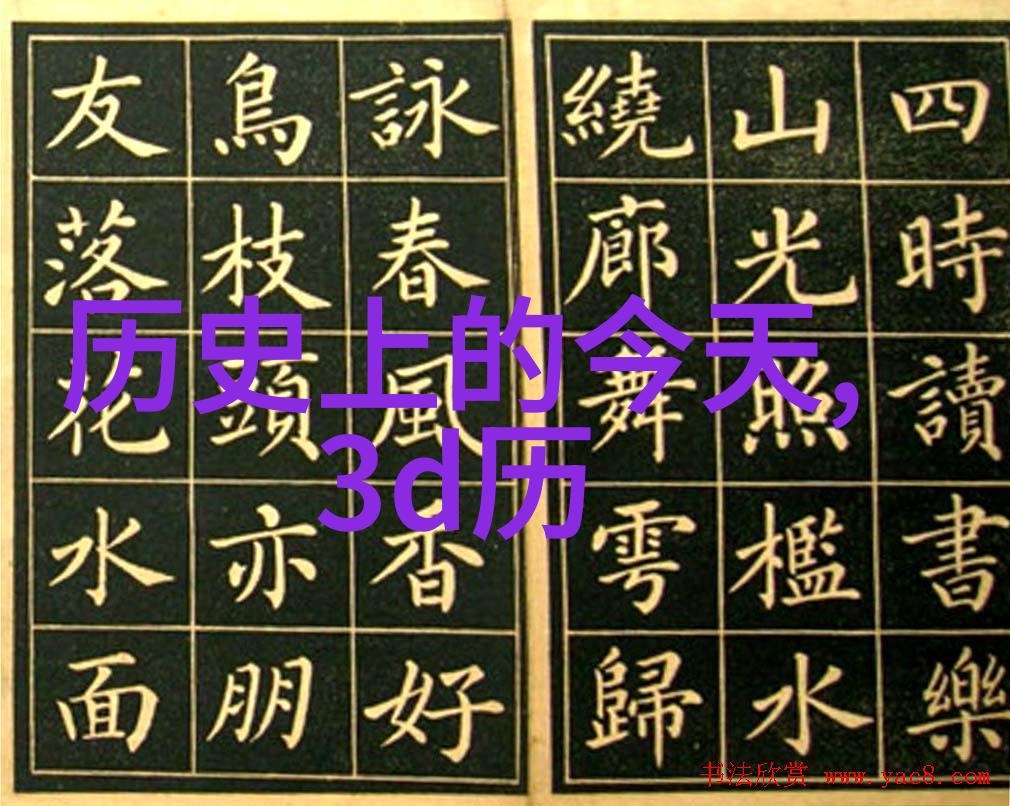 四時讀書樂
山光照檻水
繞廊舞雩歸
詠春風香好
鳥枝頭亦朋
友落花水面
历史上的今天,
3d历
书法欣赏 www.yac8.com